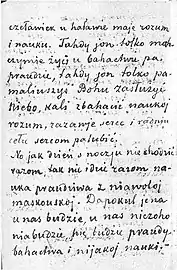 człowiek u haławie maje rozum
i nauku. Tahdy jon tolko moh-
czymie żyć u bahactwi pa
praudzie, tahdy jon tolko pa-
maliuszyś Bohu zasłużyć
Niebo, kali zbahacić naukoj
rozum, razam je serce i radniu
cełu sercom palubić.
No jak dzień s noczju nie chodzić
razom, tak nie idzie razom na-
uka praudziwa z niawoloj
maskouskoj. Dapokul jena
u nas budzie, u nas niczoho
nia budzie, nie budzie praudy,
bahactwa i nijakoj nauki.